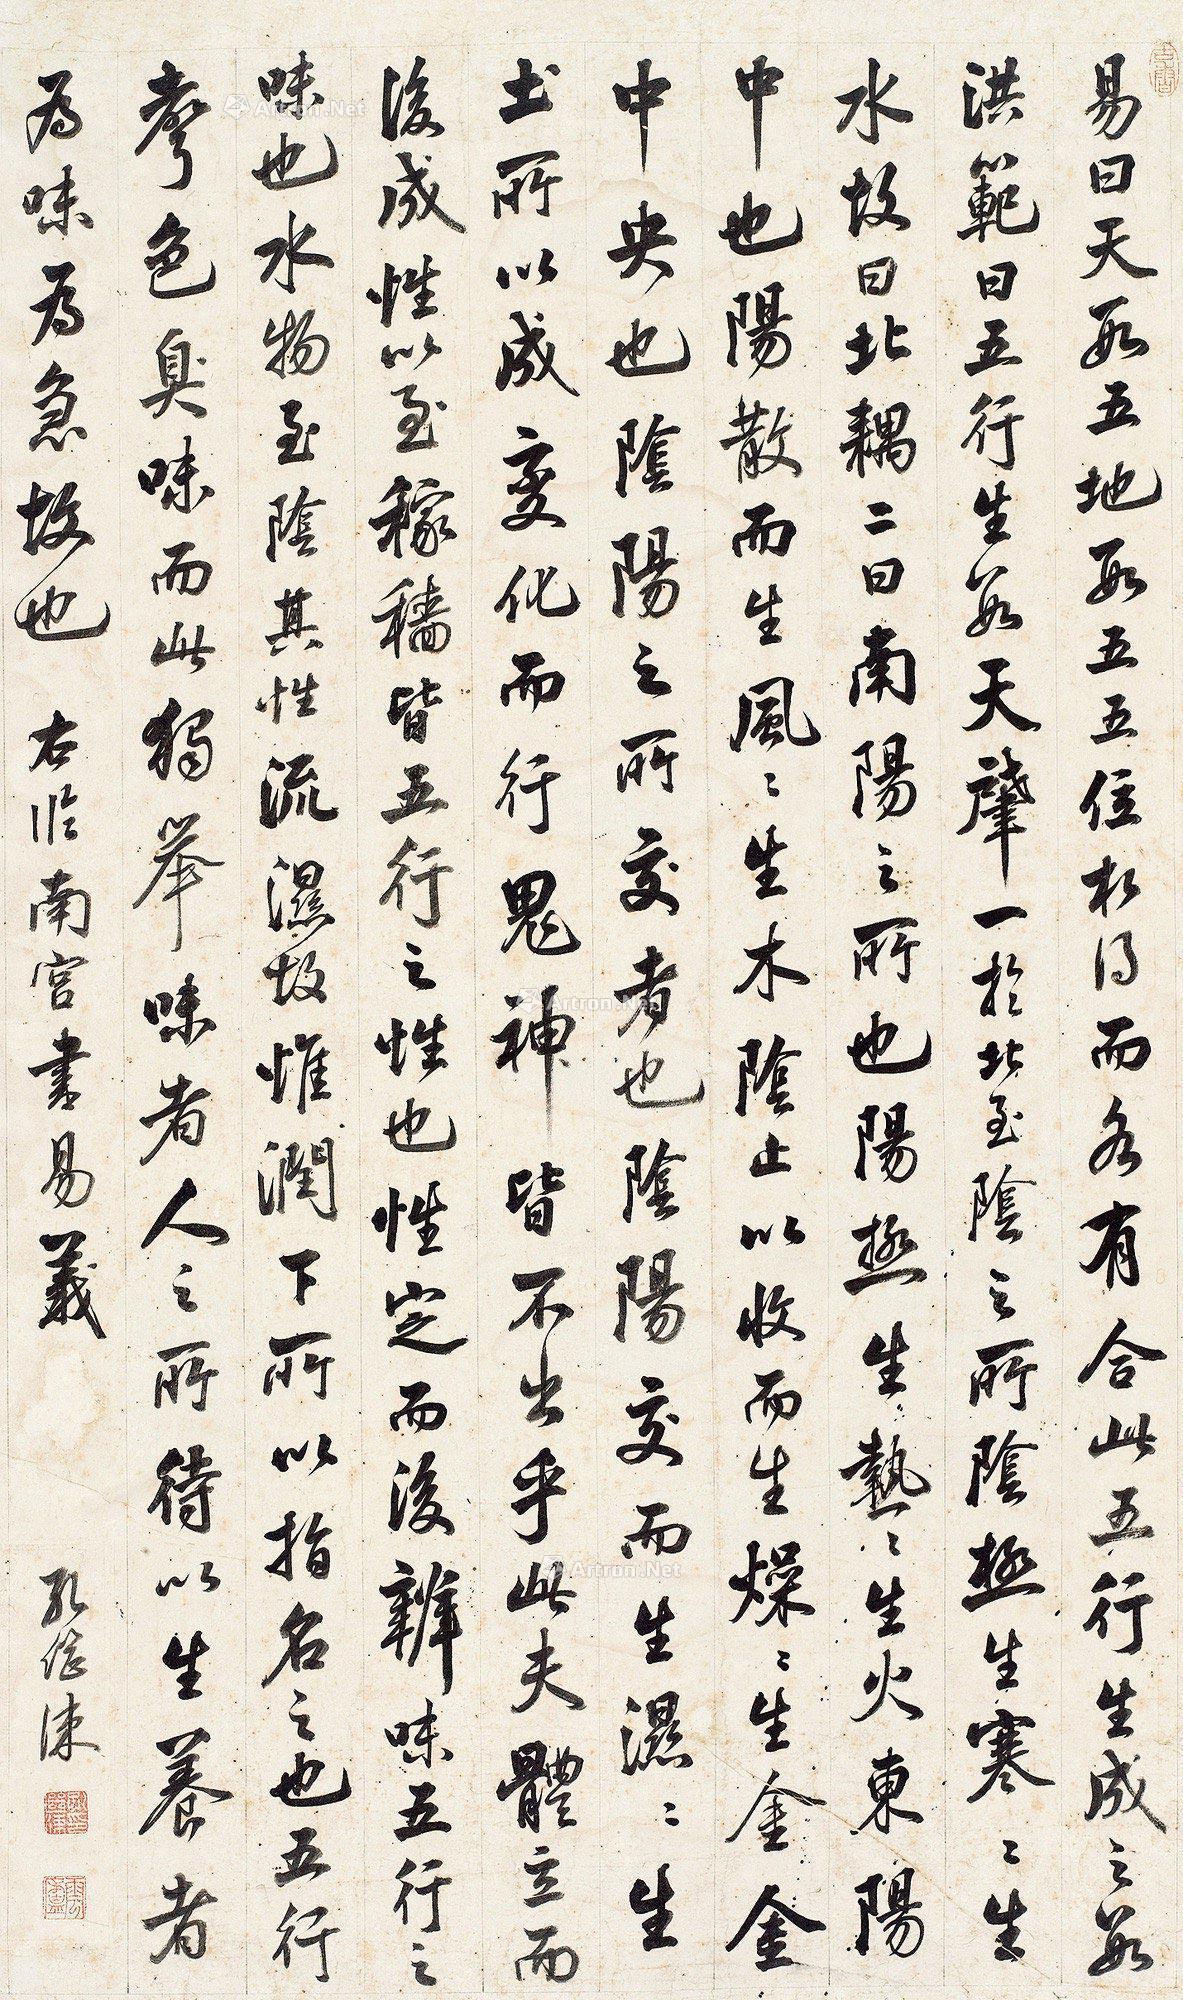 易曰天數五地數五五位相得而各有合此五行生成之數
洪範曰五行生數天肇一於北至陰之所陰極生寒〻生
水故曰北耦二曰南陽之所也陽極生熱〻生火東陽
中也陽散而生風〻生木陰止以收而生燥〻生金金
中央也陰陽之所交者也陰陽交而生濕〻生
土所以成變化而行鬼神皆不出乎此夫體立而
後成性以至稼穡皆五行之性也性定而後辨味五行之
味也水物至陰其性流濕故惟潤下所以指名之也五行
聲色臭味而此獨舉味者人之所待以生養者
為味為急故也 右臨南宮書易義 孔繼涑
Artron.Net
Artron.Net
Artron.Net